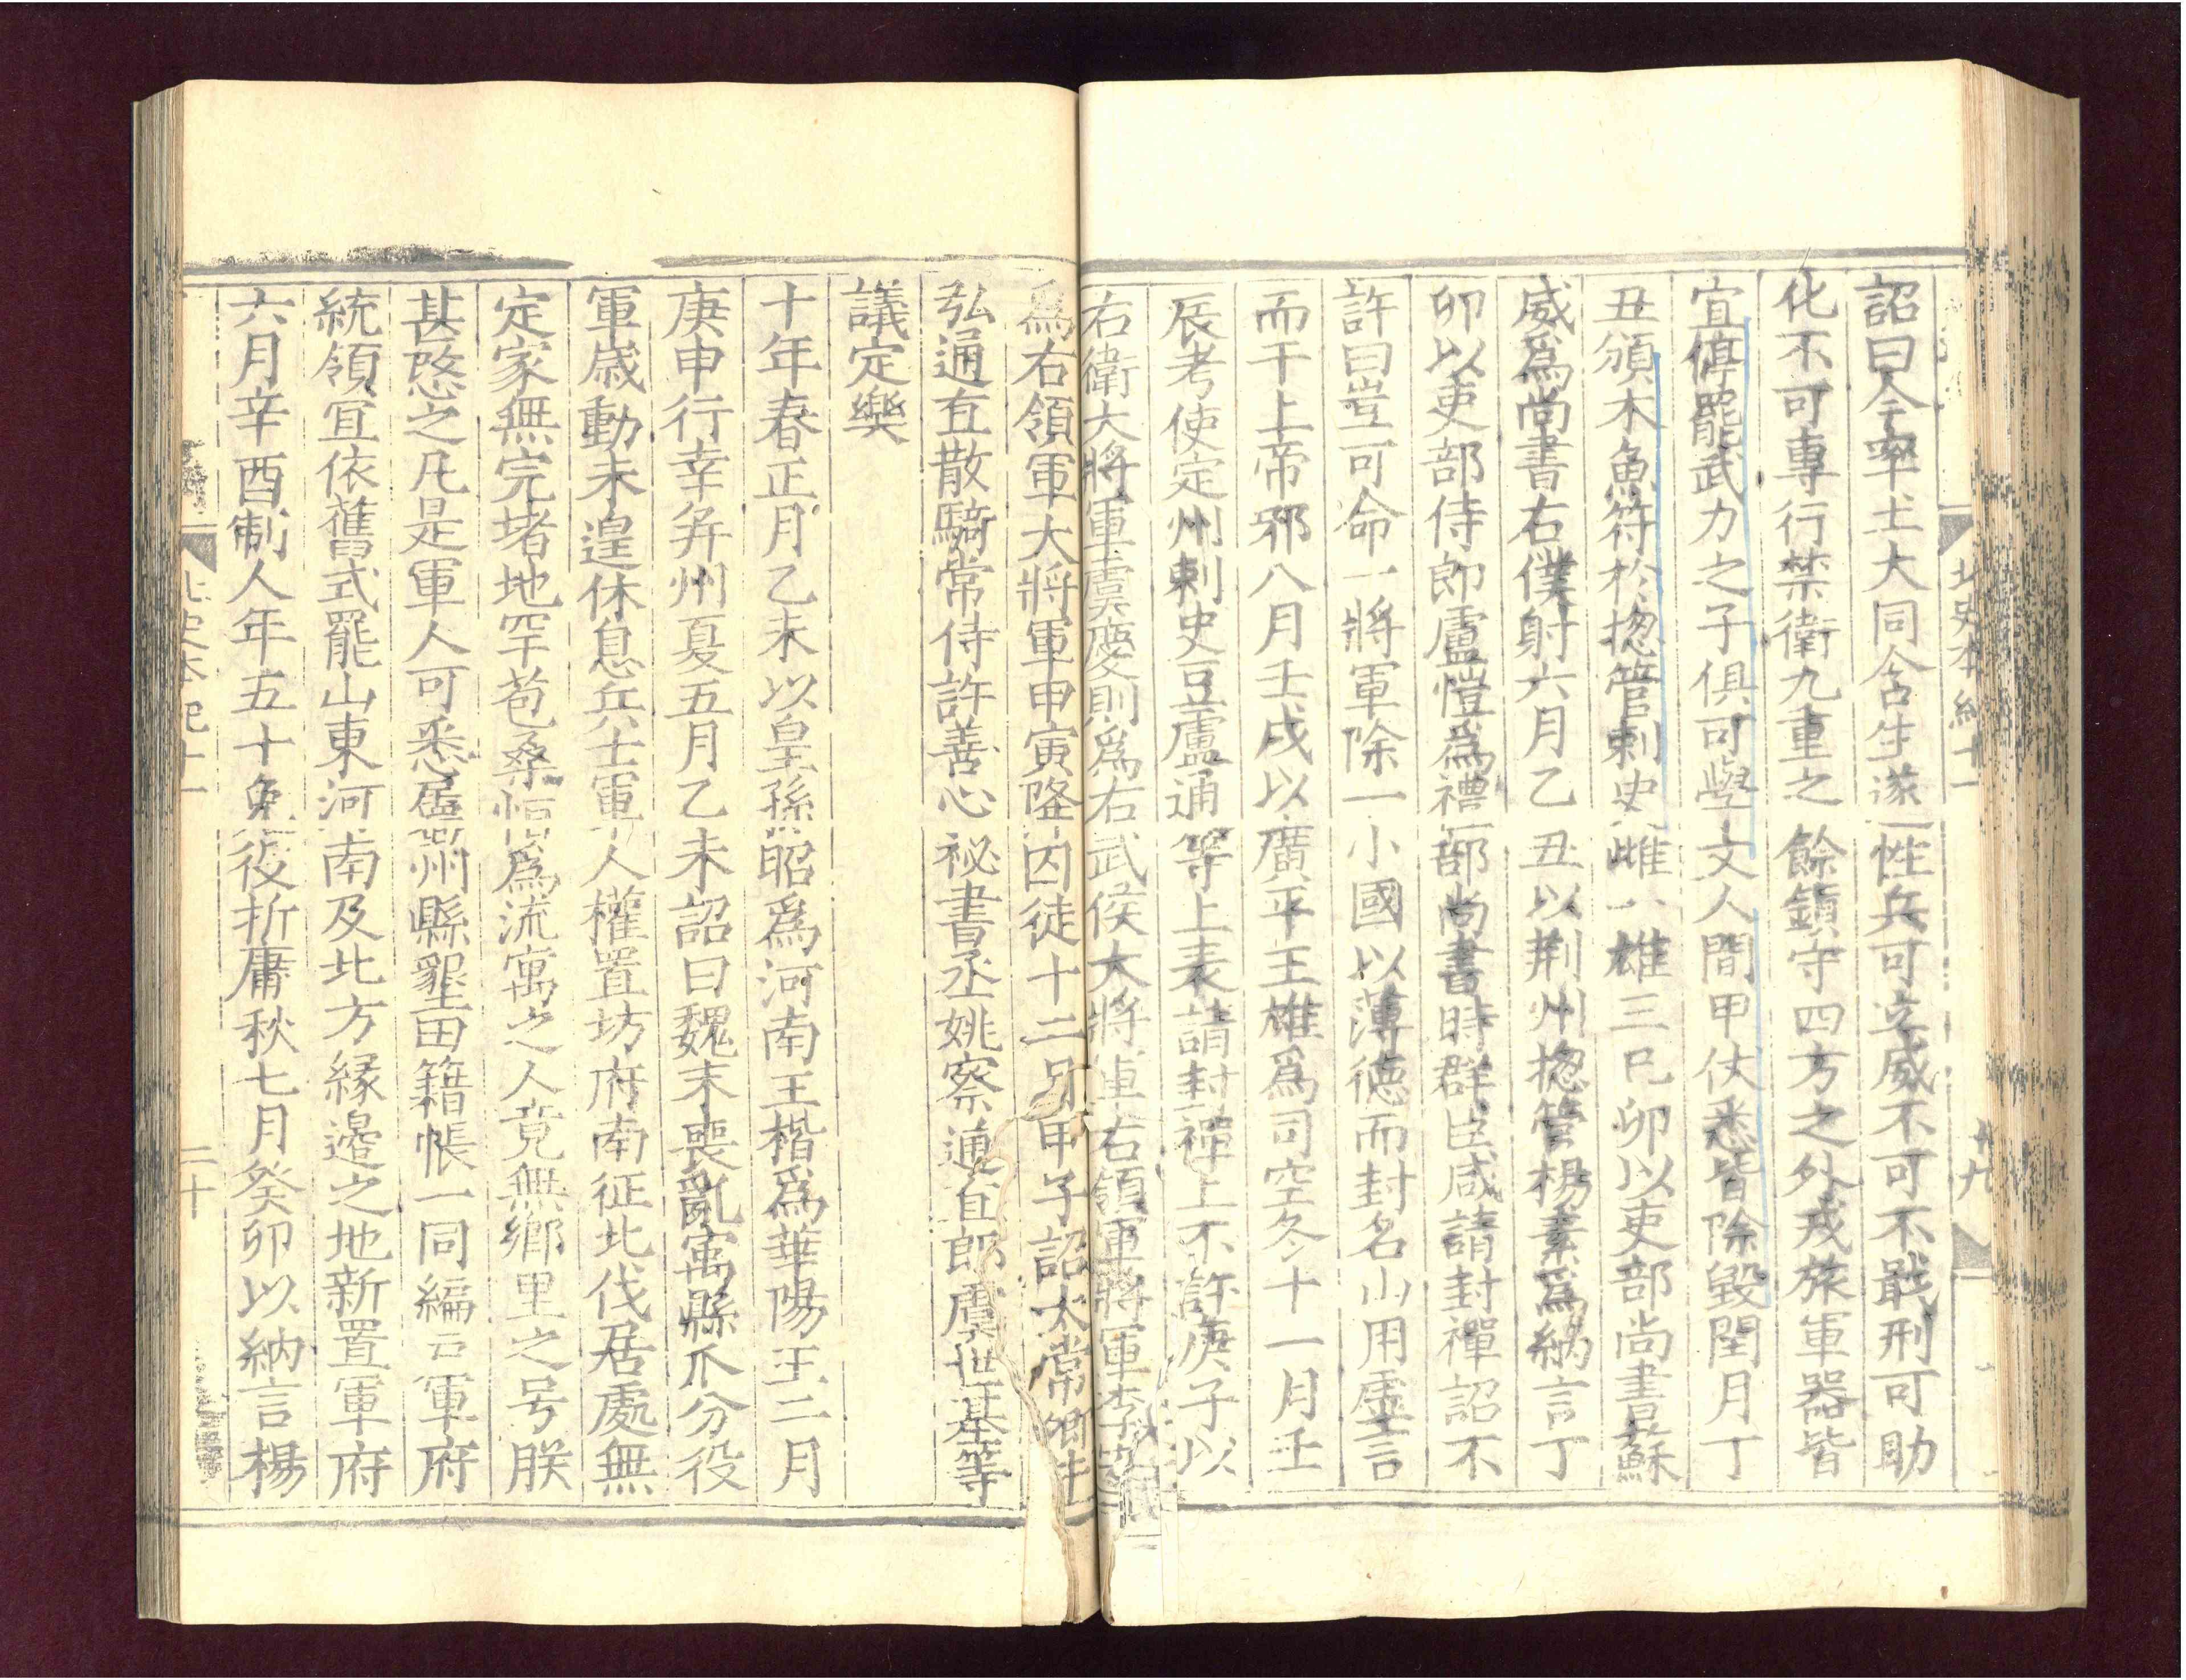 北史本紀十一
十九
詔曰今率土大同含生遂性兵可立威不可不戢刑可助
化不可專行禁衛九重之餘鎮守四方之外戎旅軍器皆
宜停罷武力之子俱可學文人間甲仗悉皆除毀閏月丁
丑頒木魚符於揔管刺史雌一雄三己卯以吏部尚書蘇
威爲尚書右僕射六月乙丑以荆州揔管楊素爲納言丁
卯以吏部侍郎盧愷爲禮部尚書時群臣咸請封禪詔不
許曰豈可命一將軍除一小國以薄德而封名山用虛言
而干上帝邪八月壬戌以廣平王雄爲司空冬十一月壬
辰考使定州刺史豆盧通等上表請封禪上不許庚子以
右衛大將軍虞慶則爲右武侯大將軍右領軍將軍李
爲右領軍大將軍甲寅降囚徒十二月甲子詔太常卿牛
弘通直散騎常侍許善心祕書丞姚察通直郎虞世基等
議定樂
十年春正月乙未以皇孫昭爲河南王楷爲華陽王二月
庚申行幸并州夏五月乙未詔曰魏末喪亂寓縣瓜分役
軍歲動未遑休息兵士軍人權置坊府南征北伐居處無
定家無完堵地罕苞桑恒爲流寓之人竟無鄉里之号朕
甚愍之凡是軍人可悉屬州縣墾田籍帳一同編戶軍府
統領宜依舊式罷山東河南及北方緣邊之地新置軍府
六月辛酉制人年五十免役折庸秋七月癸卯以納言楊
北史本紀十一
二十